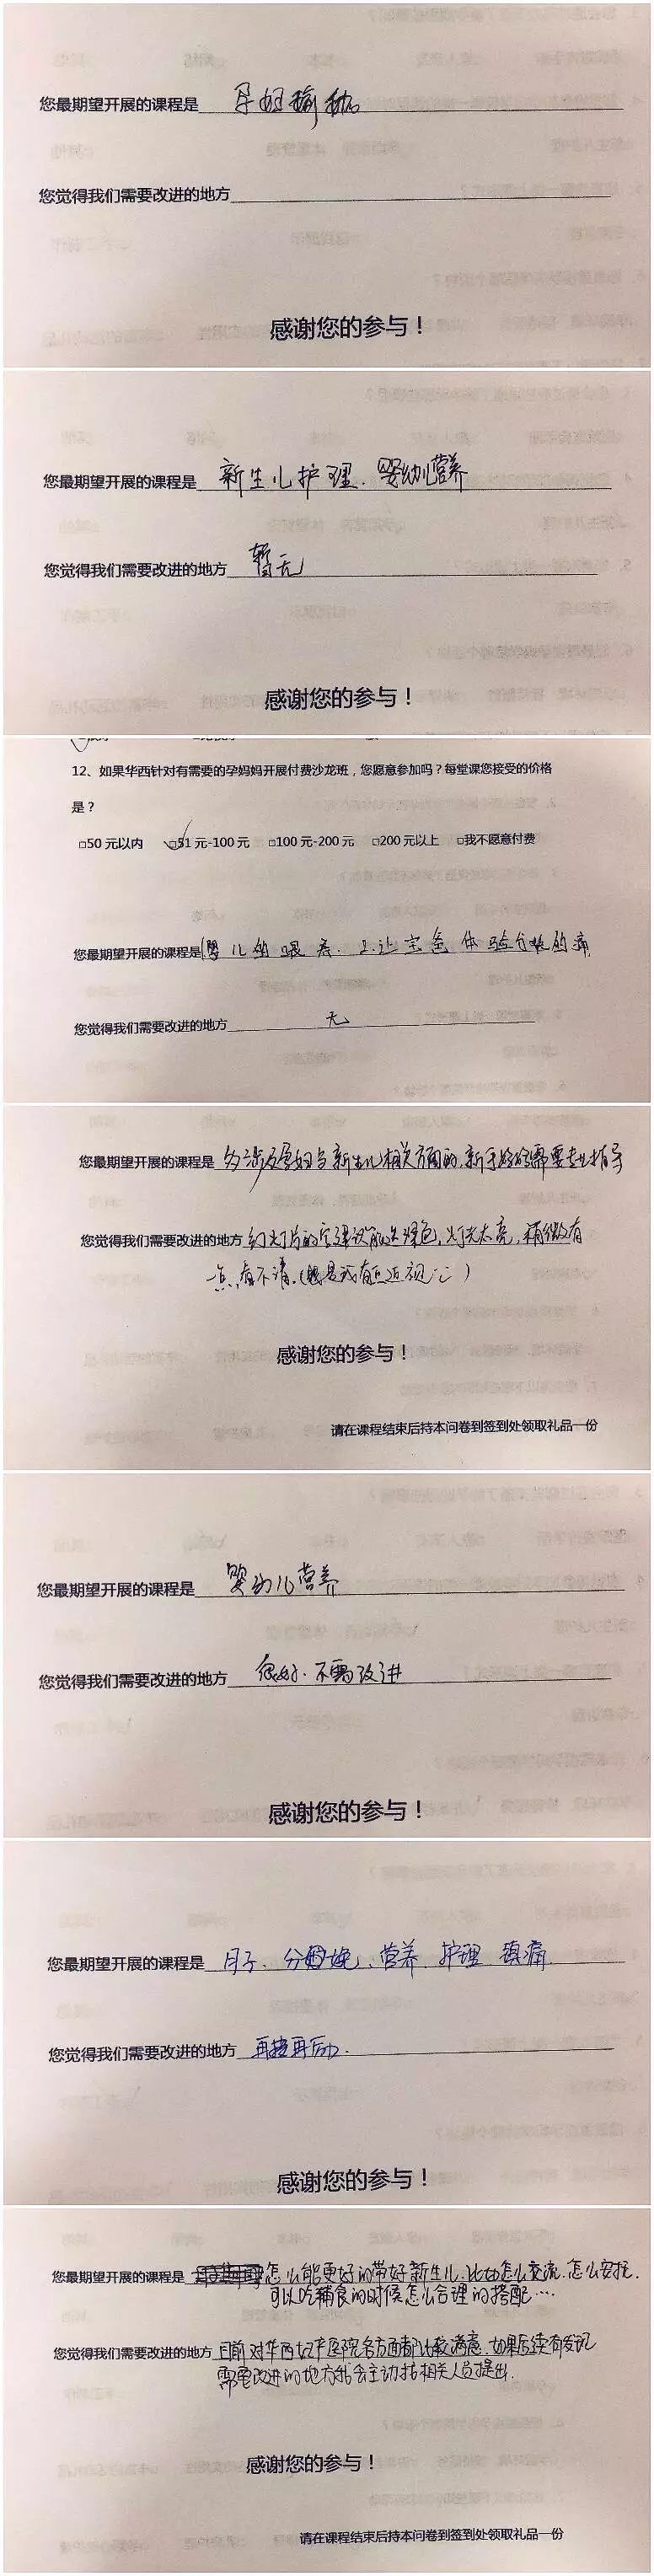 您最期望开展的课程是 孕妇瑜伽
您觉得我们需要改进的地方
感谢您的参与！
您最期望开展的课程是 新生儿护理、婴幼儿营养
您觉得我们需要改进的地方 暂无
感谢您的参与！
12、如果华西针对有需要的孕妈妈开展付费沙龙班，您愿意参加吗？每堂课您接受的价格
是？
□50元以内 □51元-100元 □100元-200元 □200元以上 □我不愿意付费
您最期望开展的课程是 婴儿的喂养. 2.让宝爸体验分娩的痛
您觉得我们需要改进的地方 无
您最期望开展的课程是 多涉及孕妇与新生儿相关方面的,新手妈妈需要专业指导
您觉得我们需要改进的地方 幻灯片的字建议能选绿色,灯光太亮,稍微有
一点看不清.(是我有点近视)
感谢您的参与！
请在课程结束后持本问卷到签到处领取礼品一份
您最期望开展的课程是 婴幼儿营养
您觉得我们需要改进的地方 很好.不需改进
感谢您的参与！
您最期望开展的课程是 月子、分娩、营养、护理 镇痛
您觉得我们需要改进的地方 再接再励.
感谢您的参与！
您最期望开展的课程是 怎么能更好的带好新生儿.比如怎么交流.怎么安抚.
可以吃辅食的时候怎么合理的搭配…
您觉得我们需要改进的地方 目前对华西妇产医院各方面都比较满意.如果后续有发现
需要改进的地方我会主动找相关人员提出.
感谢您的参与！
请在课程结束后持本问卷到签到处领取礼品一份